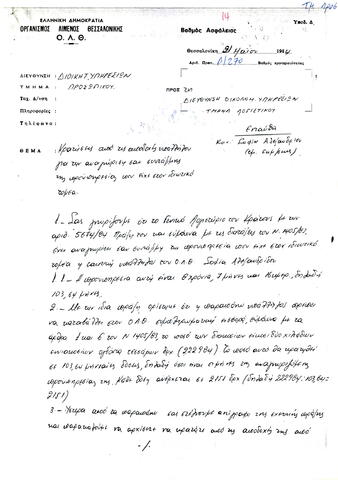 14
ΕΛΛΗΝΙΚΗ ΔΗΜΟΚΡΑΤΙΑ
ΟΡΓΑΝΙΣΜΟΣ ΛΙΜΕΝΟΣ ΘΕΣΣΑΛΟΝΙΚΗΣ
Ο.Λ.Θ.
Βαθμός Ασφάλειας
Θεσσαλονίκη 21 Μαΐου
Αριθ. Πρωτ.
Βαθμός προτεραιότητας
ΔΙΕΥΘΥΝΣΗ: ΔΙΟΙΚΗΤ. ΥΠΗΡΕΣΙΩΝ
ΤΜΗΜΑ: ΠΡΟΣΩΠΙΚΟΥ
Ταχ. Δ/νση:
Πληροφορίες:
Τηλέφωνο:
ΠΡΟΣ: Τη
ΔΙΕΥΘΥΝΣΗ ΟΙΚΟΝΟΜ. ΥΠΗΡΕΣΙΩΝ
ΤΜΗΜΑ ΛΟΓΙΣΤΙΚΟΥ
Ενταύθα
Κοιν: Σοφία Αλεξανδρίδου
ΘΕΜΑ: Κρατήσεις από τις αποδοχές υπαλλήλου
για την αναγνώριση σαν συντάξιμης
της προϋπηρεσίας του είχε στον ιδιωτικό
τομέα
1 - Σας γνωρίζουμε ότι το Γενικό Λογιστήριο του Κράτους με την
αριθ. 5674/84 Πράξη του και σύμφωνα με τις διατάξεις του Ν. 1405/83,
έχει αναγνωρίσει σαν συντάξιμη την προϋπηρεσία που είχε στον ιδιωτικό
τομέα η υπάλληλος του ΟΛΘ Σοφία Αλεξανδρίδου
1.1 - Η προϋπηρεσία αυτή είναι 8 χρόνια, 7 μήνες και ημέρες, δηλαδή
103,64 μήνες.
2 - Με την ίδια πράξη ορίστηκε ότι η παραπάνω υπάλληλος οφείλει
να καταβάλει στον ΟΛΘ εισφορά, σύμφωνα με τα
άρθρα 1 και 6 του Ν 1405/83 το ποσό των διακοσίων είκοσι δύο χιλιάδων
εννιακοσίων ογδόντα τεσσάρων δρχ (222984) το ποσό αυτό θα κρατηθεί
σε 103,64 μηνιαίες δόσεις, δηλαδή όσοι και οι μήνες της αναγνωριζόμενης
προϋπηρεσίας της. Κάθε δόση ανέρχεται σε 2151 δρχ (δηλαδή 222984:103,64=
2151)
3 - Ύστερα από τα παραπάνω σας στέλνουμε αντίγραφο της σχετικής πράξης
και παρακαλούμε να αρχίσετε να κρατάτε από τις αποδοχές της από
-/-